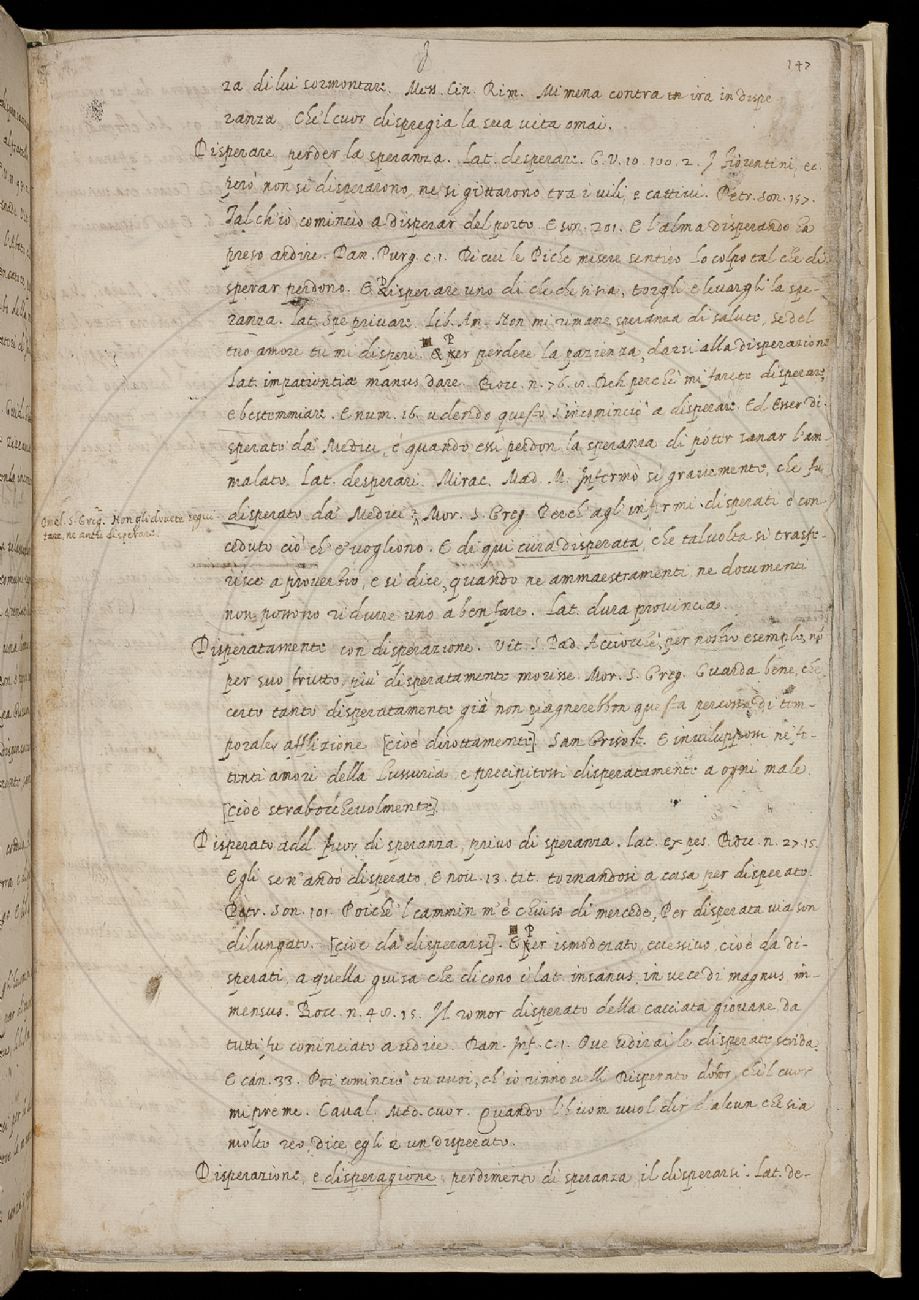 147
za di lui sormontare. Mess. Cin. Rim. Mi mena contra in ira in dispe
ranza Che'l cuor dispregia la sua vita omai.
Disperare perder la speranza. Lat. desperare. G. V. 10. 100. 2. I Fiorentini, ec
però non si disperarono, ne si gittarono tra i vili, e cattivi. Petr. Son. 157.
Talch'io comincio a disperar del porto. E son. 201. E l'alma disperando ha
preso ardire. Dan. Purg. c. 1. Di cui le Piche misere sentiro Lo colpo tal che di
sperar perdono. E Disperare uno di che che si sia, torgli e levargli la spe-
ranza. Lat. spe privare. Lib. Am. Non mi rimane speranza di salute, se del
tuo amore tu mi disperi. Per perdere la pazienza, darsi alla disperazione
Lat. impatientiae manus dare. Bocc. n. 76. 8. Deh perche mi farete disperare,
e bestemmiare. E num. 16. udendo questo s'incominciò a disperare. Ed Esser di-
sperato da Medici, é quando essi perdon la speranza di poter sanar l'am-
malato. Lat. desperari. Mirac. Mad. M. Infermò si gravemente, che fu
disperato da' Medici. Mor. S. Greg. Perch'agli infermi disperati è con-
Omel. S. Greg. Non gli dovete segui
tare, ne anche disperare.
ceduto ciò ch'e' vogliono. E di qui cura disperata, che talvolta si trasfe-
risce a proverbio, e si dice, quando ne ammaestramenti ne documenti
non possono ridurre uno a ben fare. Lat. dura provincia.
Disperatamente con disperazione. Vit. S. Pad. Acciocchè, per nostro esemplo, nè
per suo frutto, più disperatamente morisse. Mor. S. Greg. Guarda bene, che
certo tanto disperatamente già non piagnerebbon questa percossa di tem-
porale afflizione [cioè dirottamente]. San Grisost. E inviluppossi ne fe-
tenti amori della Lussuria, e precipitossi disperatamente a ogni male.
[cioè strabocchevolmente]
Disperato add. fuor di speranza, privo di speranza. Lat. expes. Bocc. n. 27. 15.
Egli se n'andò disperato, E nov. 13. tit. tornandosi a casa per disperato.
Petr. Son. 101. Poichè 'l cammin m'è chiuso di mercede, Per disperata via son
dilungato. [cioè da disperarsi]. Per ismoderato, eccessivo, cioè da di-
sperati, a quella guisa che dicono i lat. insanus, in vece di magnus, im-
mensus. Bocc. n. 48. 15. Il romor disperato della cacciata giovane da
tutti fu cominciato a udire. Dan. Inf. c. 1. Ove udirai le disperate strida.
E can. 33. Poi cominciò tu vuoi, ch'io rinnovelli Disperato dolor, che'l cuor
mi preme. Caval. Med. cuor. Quando l'huom vuol dir d'alcun che sia
molto reo, dice egli è un disperato.
Disperazione, e disperagione, perdimento di speranza, il disperarsi. Lat. de-